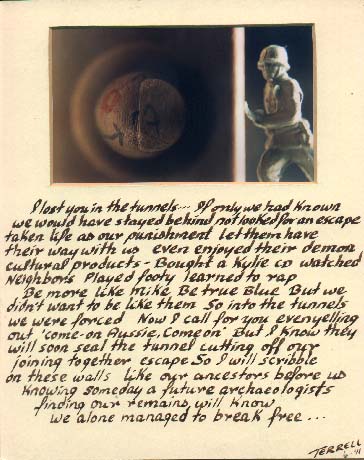 I lost you in the tunnels... If only we had known
we would have stayed behind not looked for an escape
taken life as our punishment let them have
their way with us even enjoyed their demon
cultural products - Bought a Kylie CD watched
Neighbors Played footy learned to rap
Be more like Mike Be true Blue But we
didn't want to be like them So into the tunnels
we were forced Now I call for you even yelling
out 'come on Aussie, Come on' But I know they
will soon seal the tunnel cutting off our
joining together escape. So I will scribble
on these walls like our ancestors before us
knowing someday a future archaeologists
finding our remains will know
we alone managed to break free...
TERRELL